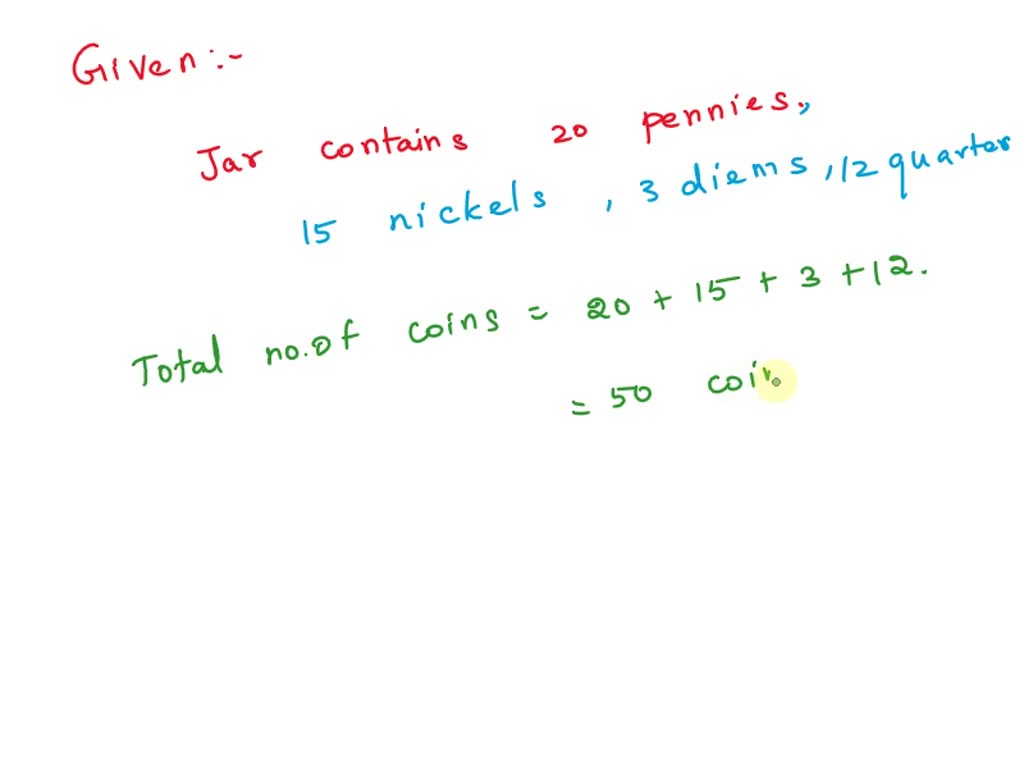 Given :-
Jar contains 20 pennies.,
15 nickels , 3 diems , 12 quarter
Total no.of coins = 20 + 15 + 3 + 12.
= 50 coi